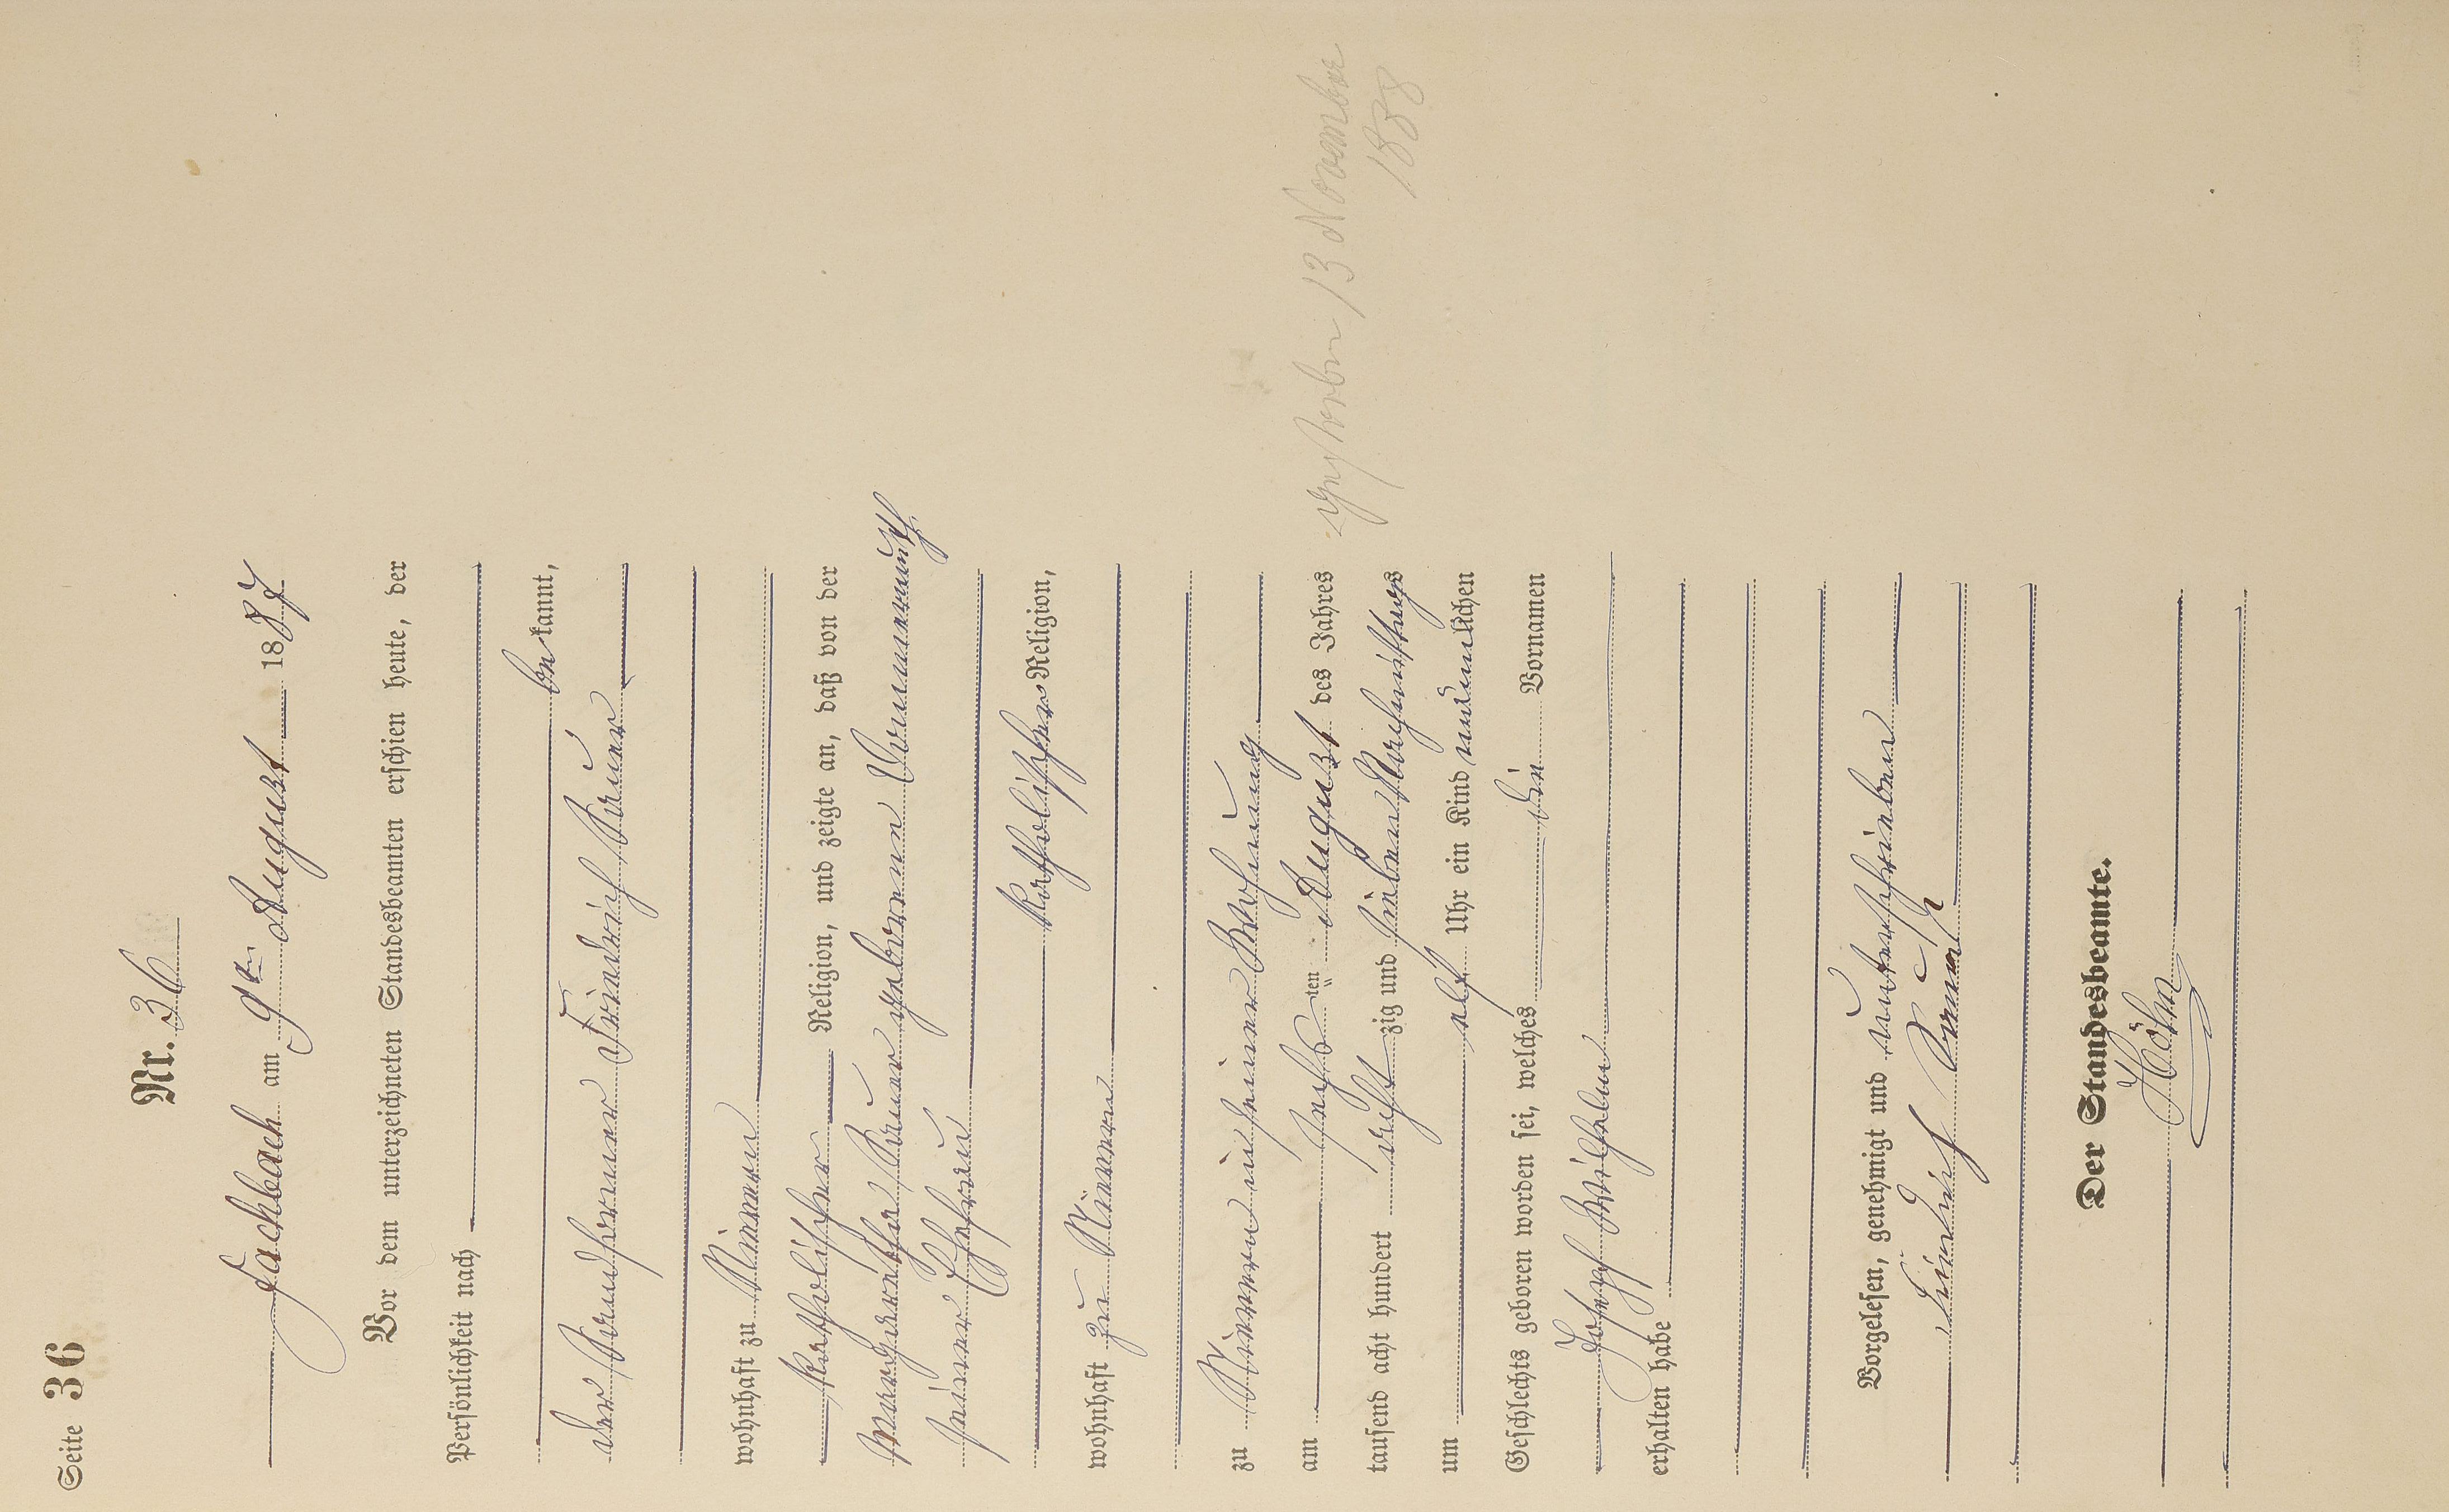 Seite 36
Nr. 36
Fachbach am 9ten August 1887
Vor dem unterzeichneten Standesbeamten erschien heute, der
Persönlichkeit nach
bekannt,
der Friedrich
wohnhaft zu Nievern
katholischer Religion, und zeigte an, daß von der
Margaretha geborene
seiner Ehefrau
katholischer Religion,
wohnhaft zu Nievern
zu Nievern in seiner Wohnung
am sechsten August des Jahres
tausend acht hundert achtzig und sieben Nachmittags
um elf Uhr ein Kind männlichen
Geschlechts geboren worden sei, welches die Vornamen
Joseph Wilhelm
erhalten habe
Gestorben 13 November
1888
Vorgelesen, genehmigt und unterschrieben
Der Standesbeamte.